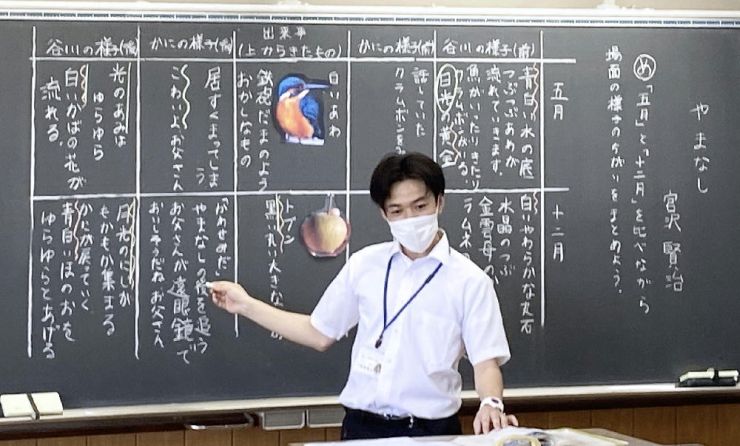 やまなし
宮沢 賢治
め 「五月」と「十二月」を比べながら
場面の様子のちがいをまとめよう。
五月
十二月
谷川の様子(前)
青白い水の底
つぶつぶあわが
流れていきます。
魚がいったりきたり
日光の黄金
白いやわらかな丸石
水晶のつぶ
金雲母の
ラムネの
かにの様子(前)
クラムボンを
話していた
出来事
(上からきたもの)
白いあわ
鉄砲だまのよう
おかしなもの
トブン
黒い丸い大きな
かにの様子(後)
居すくまってしまう
こわいよ、お父さん
「かわせみだ」
やまなしの後を追う
お父さんが遠眼鏡で
おいしそうだね、お父さん
谷川の様子(後)
光のあみは
ゆらゆら
白いかばの花が
流れる。
月光のにじが
もかもか集まる
かにが戻っていく
青白いほのおを
ゆらゆらとあげる
やまなし